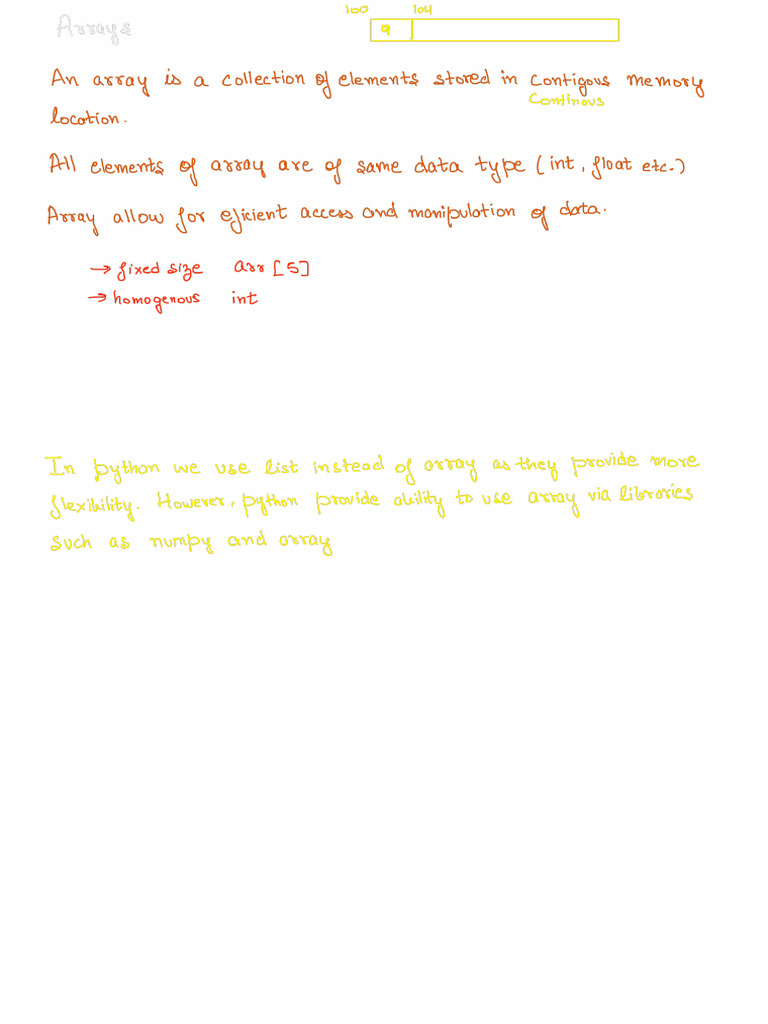 100 104
Arrays
9
An array is a collection of elements stored in contigous memory
continous
location.
All elements of array are of same data type (int, float etc.)
Array allow for eficient access and manipulation of data.
→ fixed size arr [5]
→ homogenous int
In python we use list instead of array as they provide more
flexibility. However, python provide ability to use array via libraries
such as numpy and array